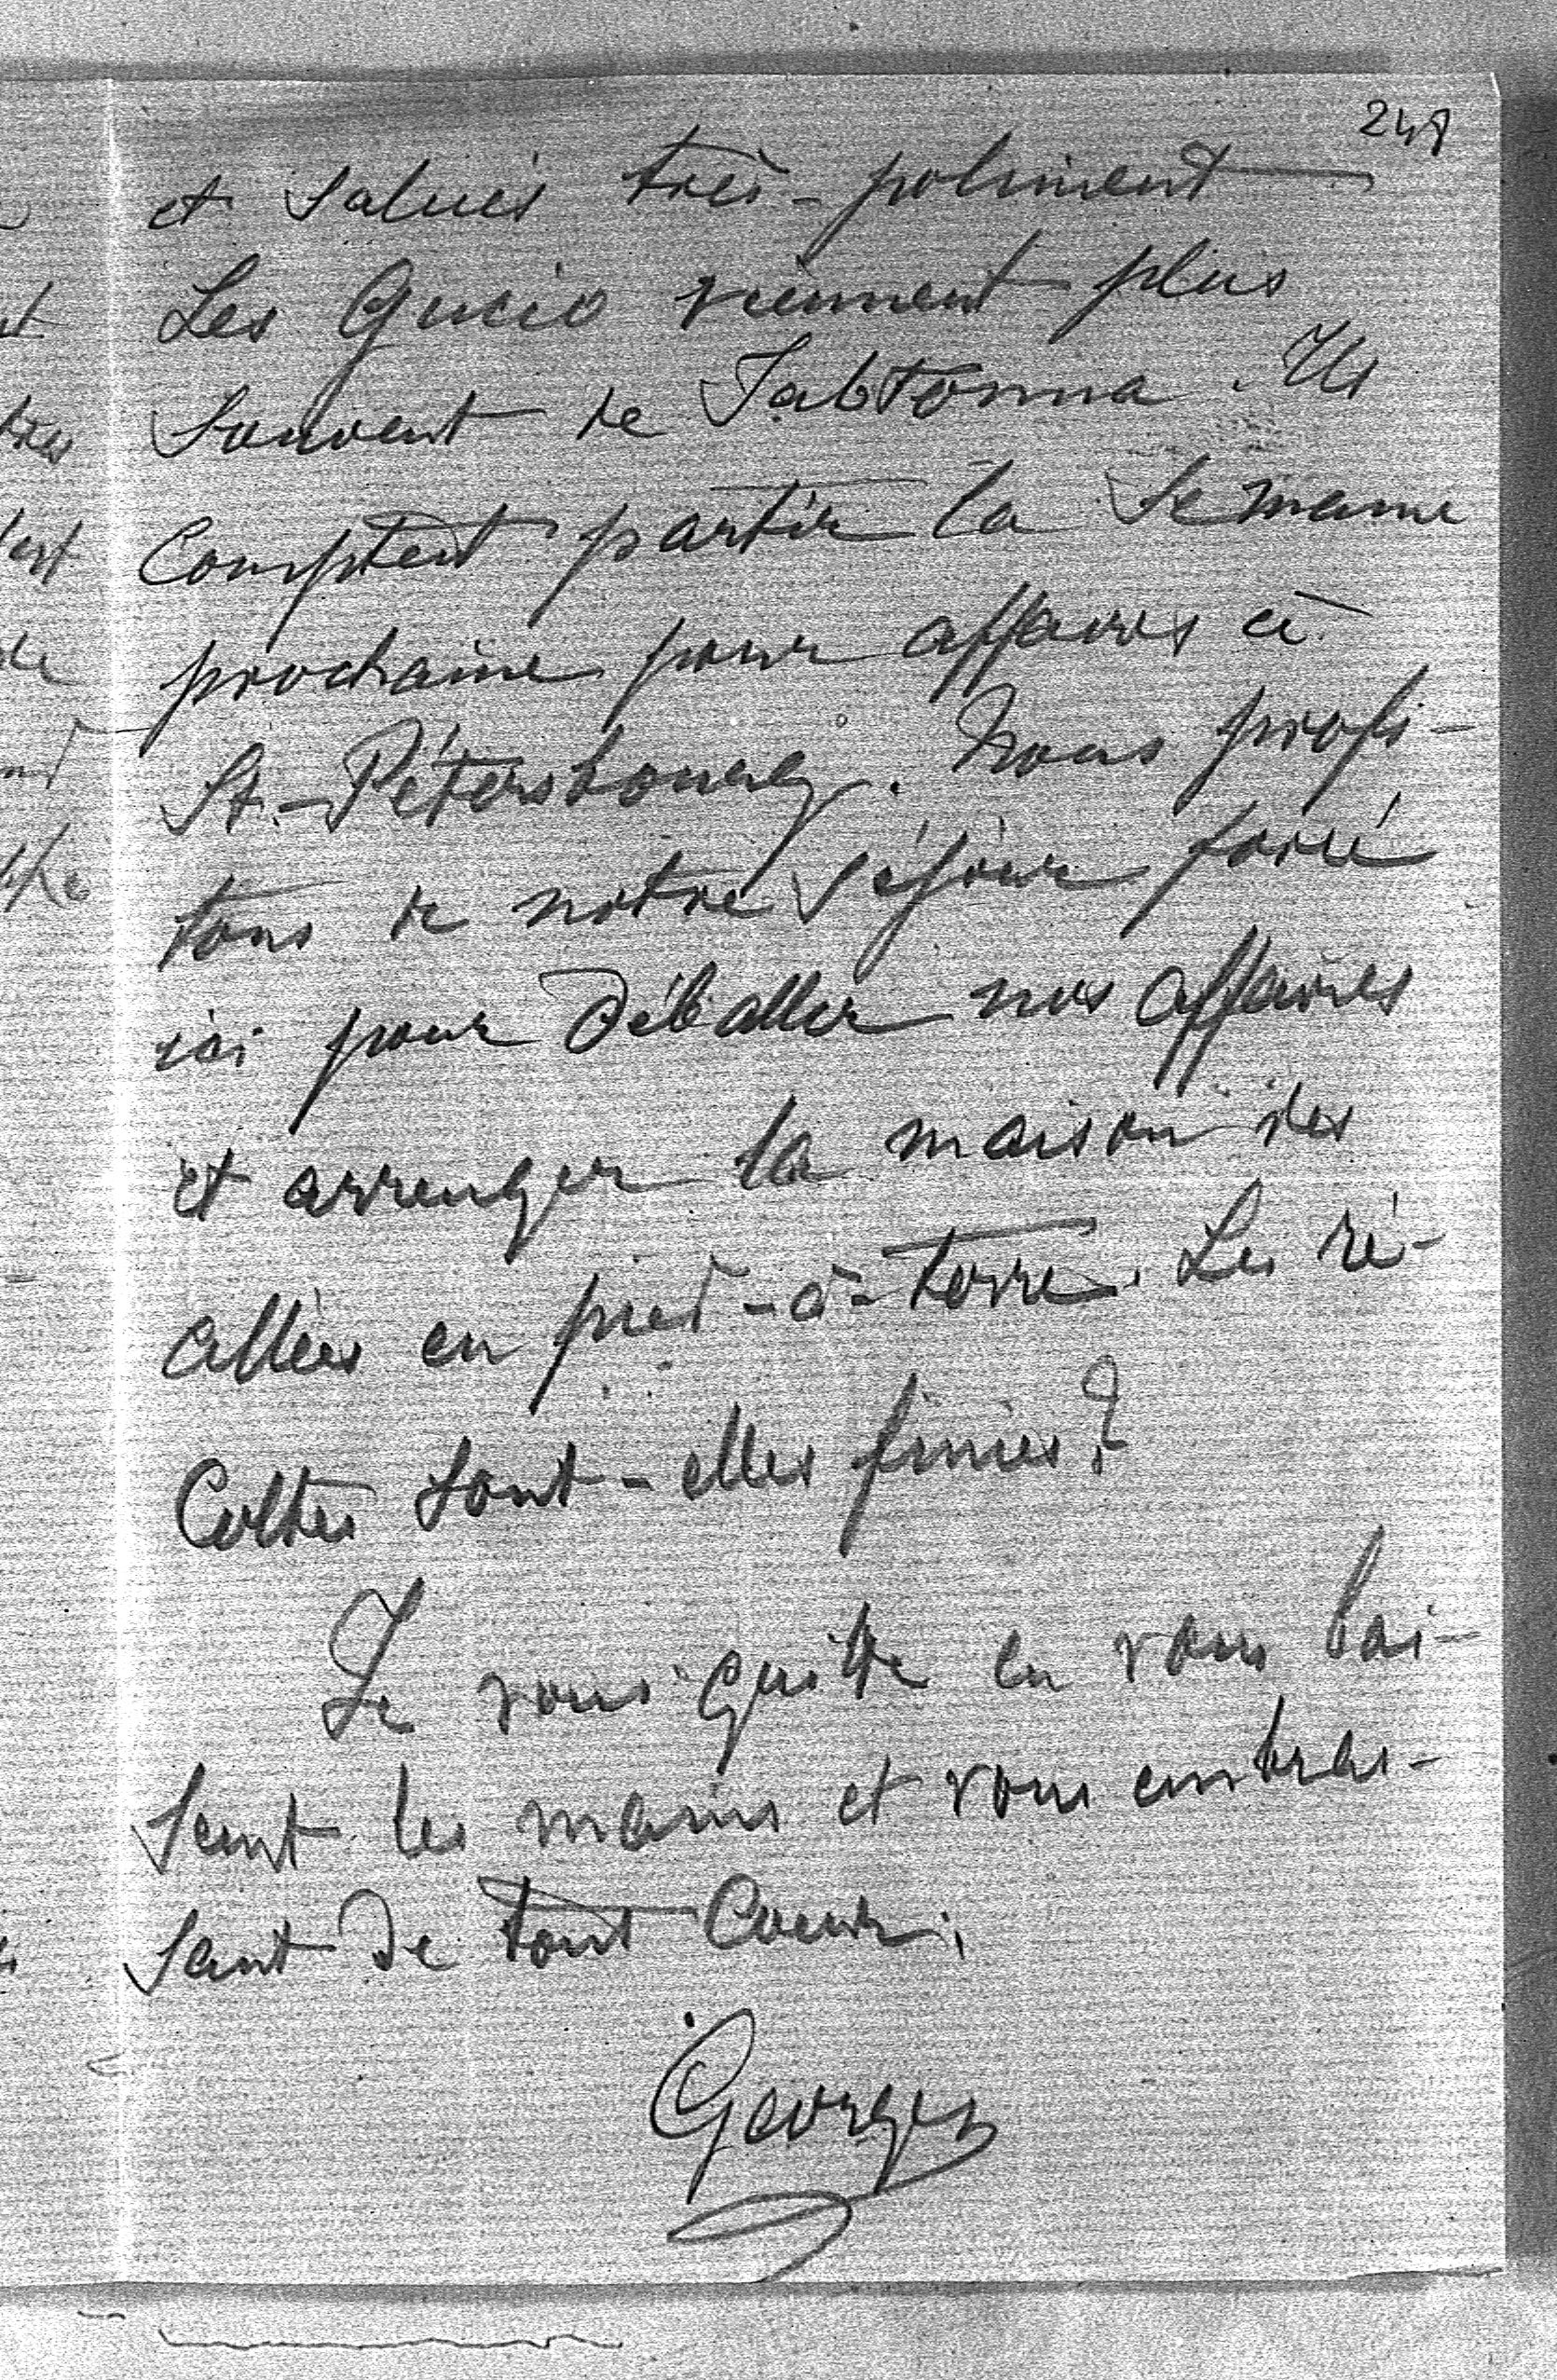 247
et salués très-poliment
Les Gucio viennent plus
souvent de Jabłonna. Ils
comptent partir la semaine
prochaine pour affaires à
St.-Pétersbourg. Nous profi-
tons de notre séjour forcé
ici pour déballer nos affaires
et arranger la maison des
allées en pied-à-terre. Les ré-
coltes sont-elles finies?
Je vous quitte en vous bai-
sant les mains et vous embras-
sant de tout coeur.
Georges